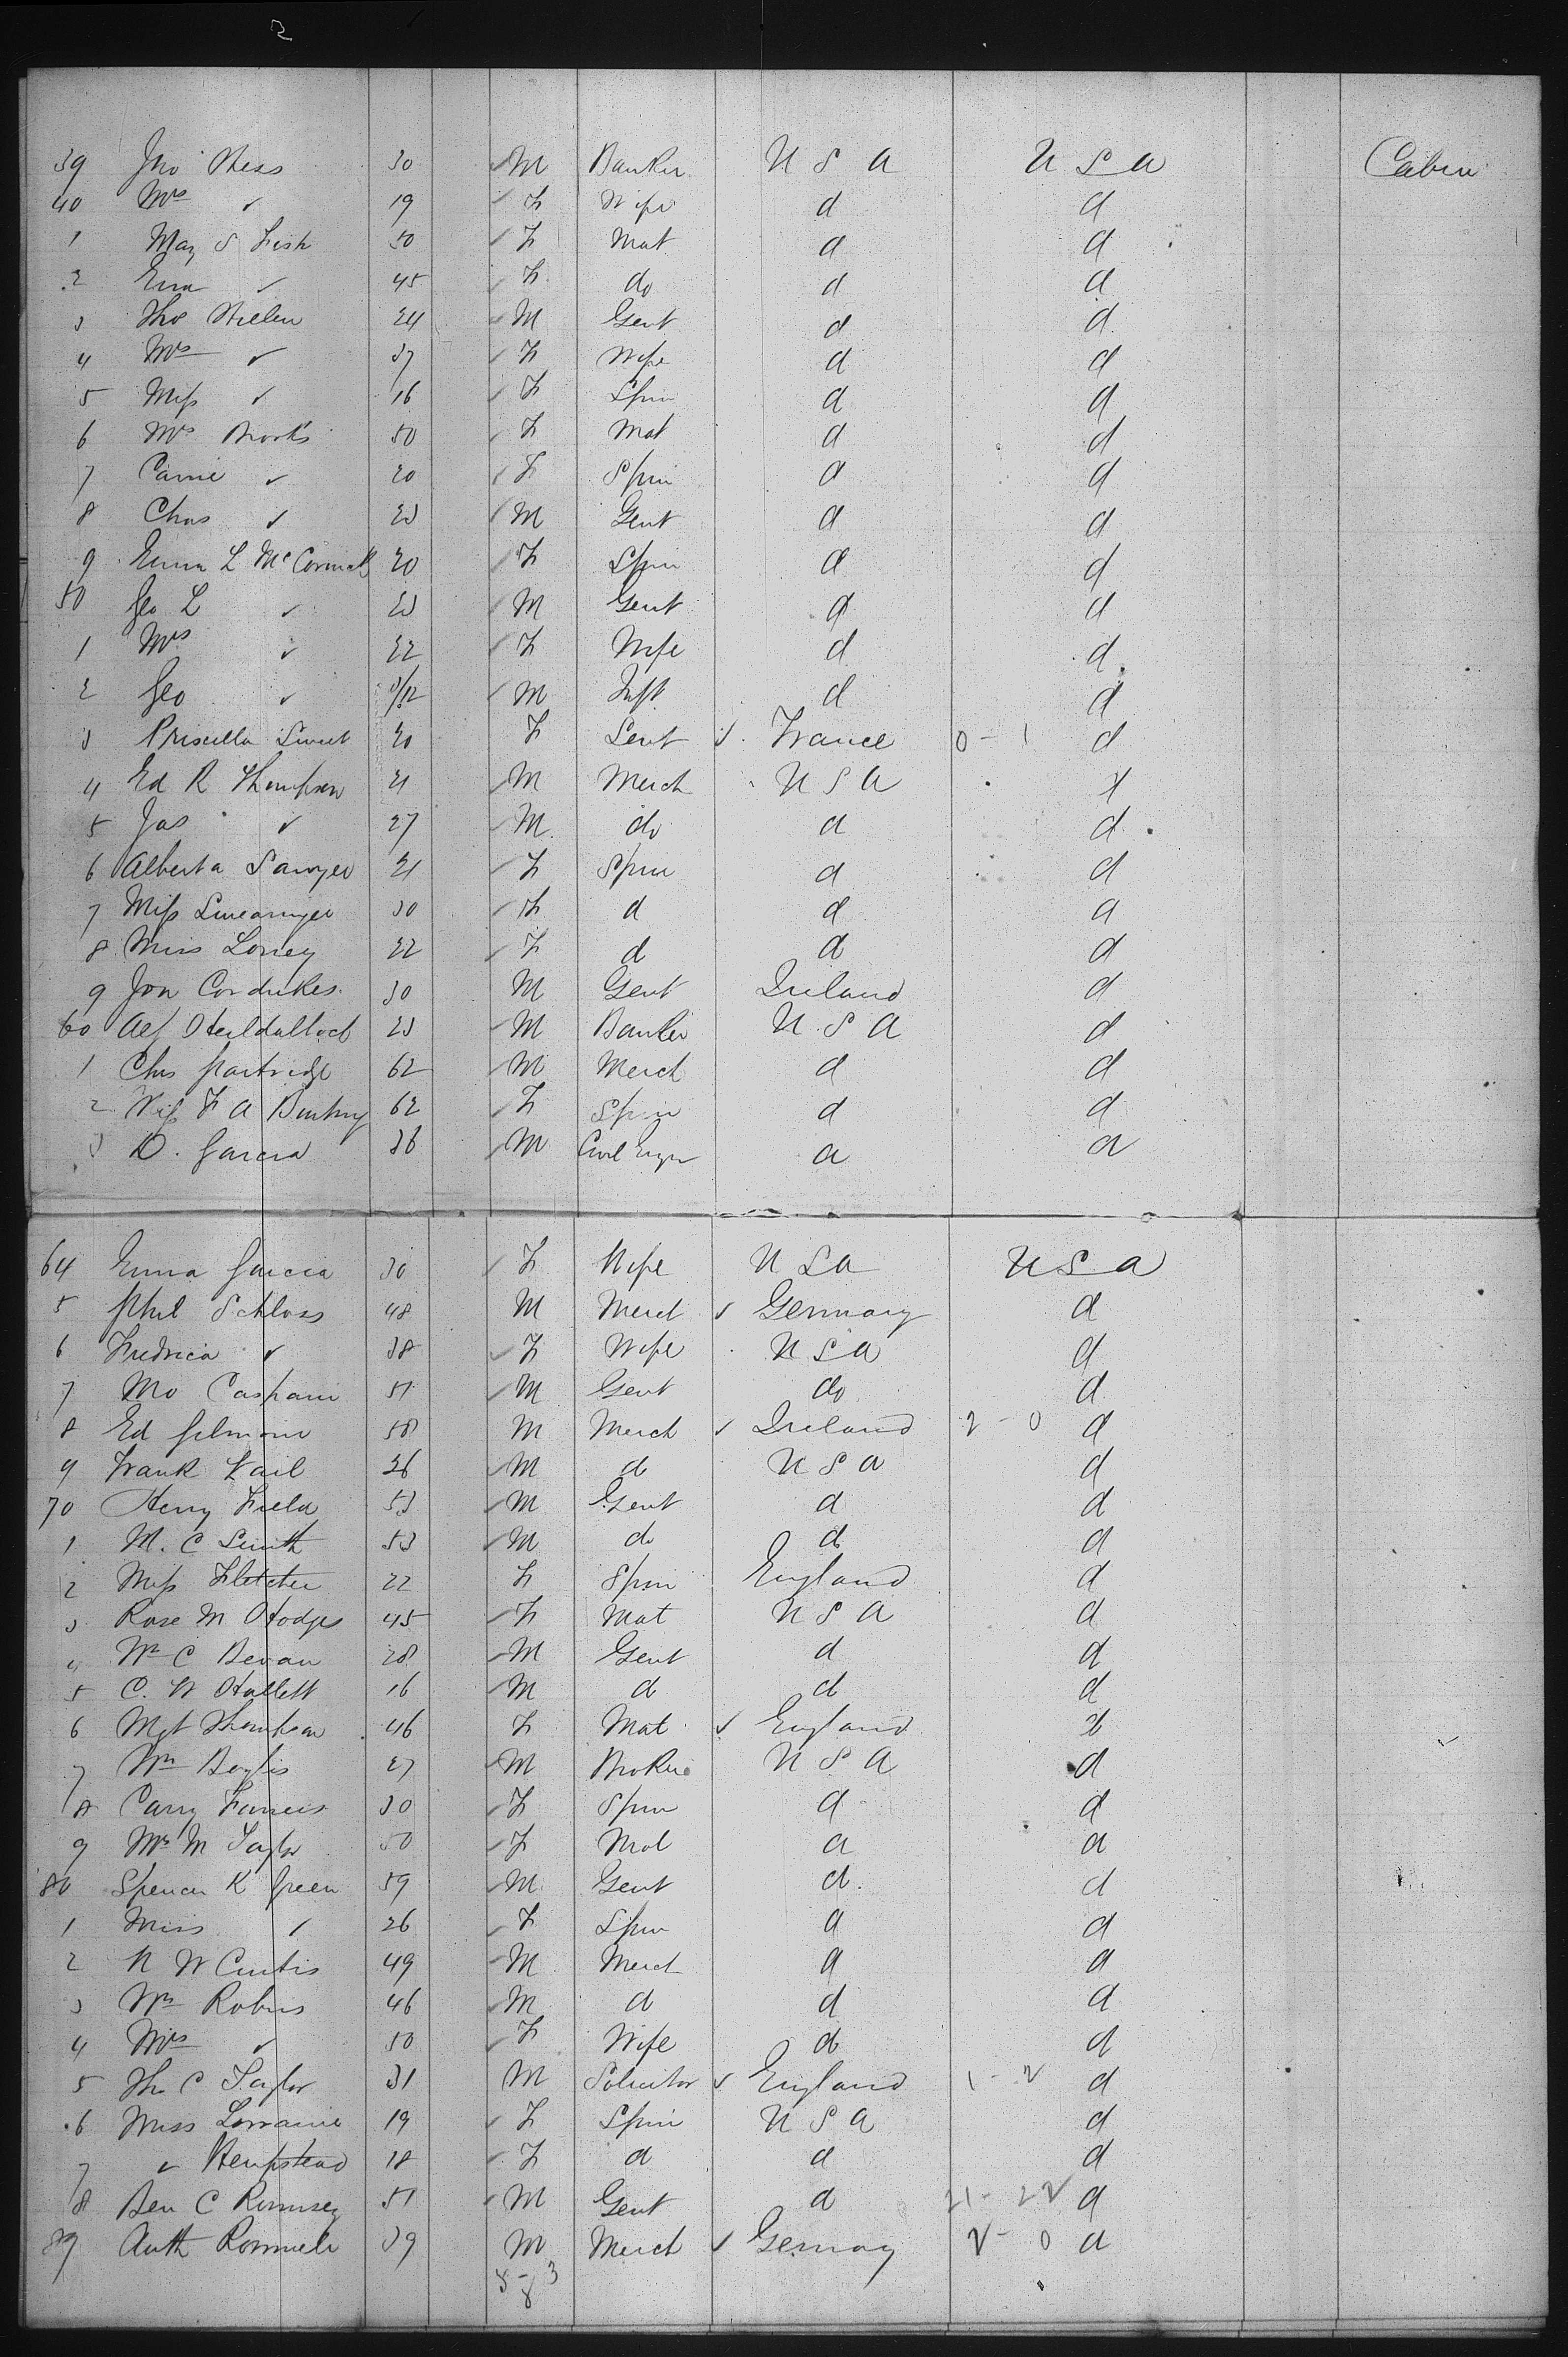 2
39 Jno Hess 30 M Banker U S A U S A Cabin
40 Mrs ✓ 19 F Wife d d
1 May S Fish 50 F Mat d d
2 Em ✓ 45 F do d d
3 Tho Hillen 24 M Gent d d
4 Mrs ✓ 37 F Wife d d
5 Miss ✓ 16 F Spin d d
6 Mrs Brooks 50 F Mat d d
7 Carrie ✓ 20 F Spin d d
8 Chas ✓ 23 M Gent d d
9 Emma L McCormack 20 F Spin d d
50 Geo L ✓ 23 M Gent d d
1 Mrs ✓ 22 F Wife d d
2 Geo ✓ /12 M Inft d d
3 Priscilla 20 F Sert ✓ France 0 - 1 d
4 Ed R Thompson 21 M Merch U S A d
5 Jas ✓ 27 M do d d
6 Alberta Sawyer 21 F Spin d d
7 Miss Swearinger 30 F d d d
8 Miss Loney 22 F d d d
9 Jon Cordukes 30 M Gent Ireland d
60 Alf 23 M Banker U S A d
1 Chs Partridge 62 M Merch d d
2 F A 62 F Spin d d
3 D. Garcia 36 M Civil Engr d d
64 Emma Garcia 30 F Wife U S A U S A
5 Phil Schloss 48 M Merch ✓ Germany d
6 Fredrica ✓ 38 F Wife U S A d
7 Mo Caspari 51 M Gent do d
8 Ed Gilmour 58 M Merch ✓ Ireland 2 - 0 d
9 Frank Vail 26 M d U S A d
70 Henry Field 53 M Gent d d
1 M. C Smith 53 M do d d
2 Miss Fletcher 22 F Spin England d
3 Rose M Hodges 45 F Mat U S A d
4 Wm C Bevan 28 M Gent d d
5 C. W Hallett 16 M d d d
6 Mgt Thompson 46 F Mat ✓ England d
7 Wm Baylis 27 M Broker U S A d
8 Carry Francis 30 F Spin d d
9 Mrs M Taylor 50 F Mat d d
80 Spencer K Green 59 M Gent d d
1 Miss ✓ 26 F Spin d d
2 N W Curtis 49 M Merch d d
3 Wm Robins 46 M d d d
4 Mrs ✓ 50 F Wife d d
5 Tho C Taylor 31 M Solicitor ✓ England 1 - 2 d
6 Miss Lorraine 19 F Spin U S A d
7 ✓ Hempstead 18 F d d d
8 Ben C Rumsey 51 M Gent d 21 - 22 d
89 Auth 39 M Merch ✓ Germany 2 - 0 d